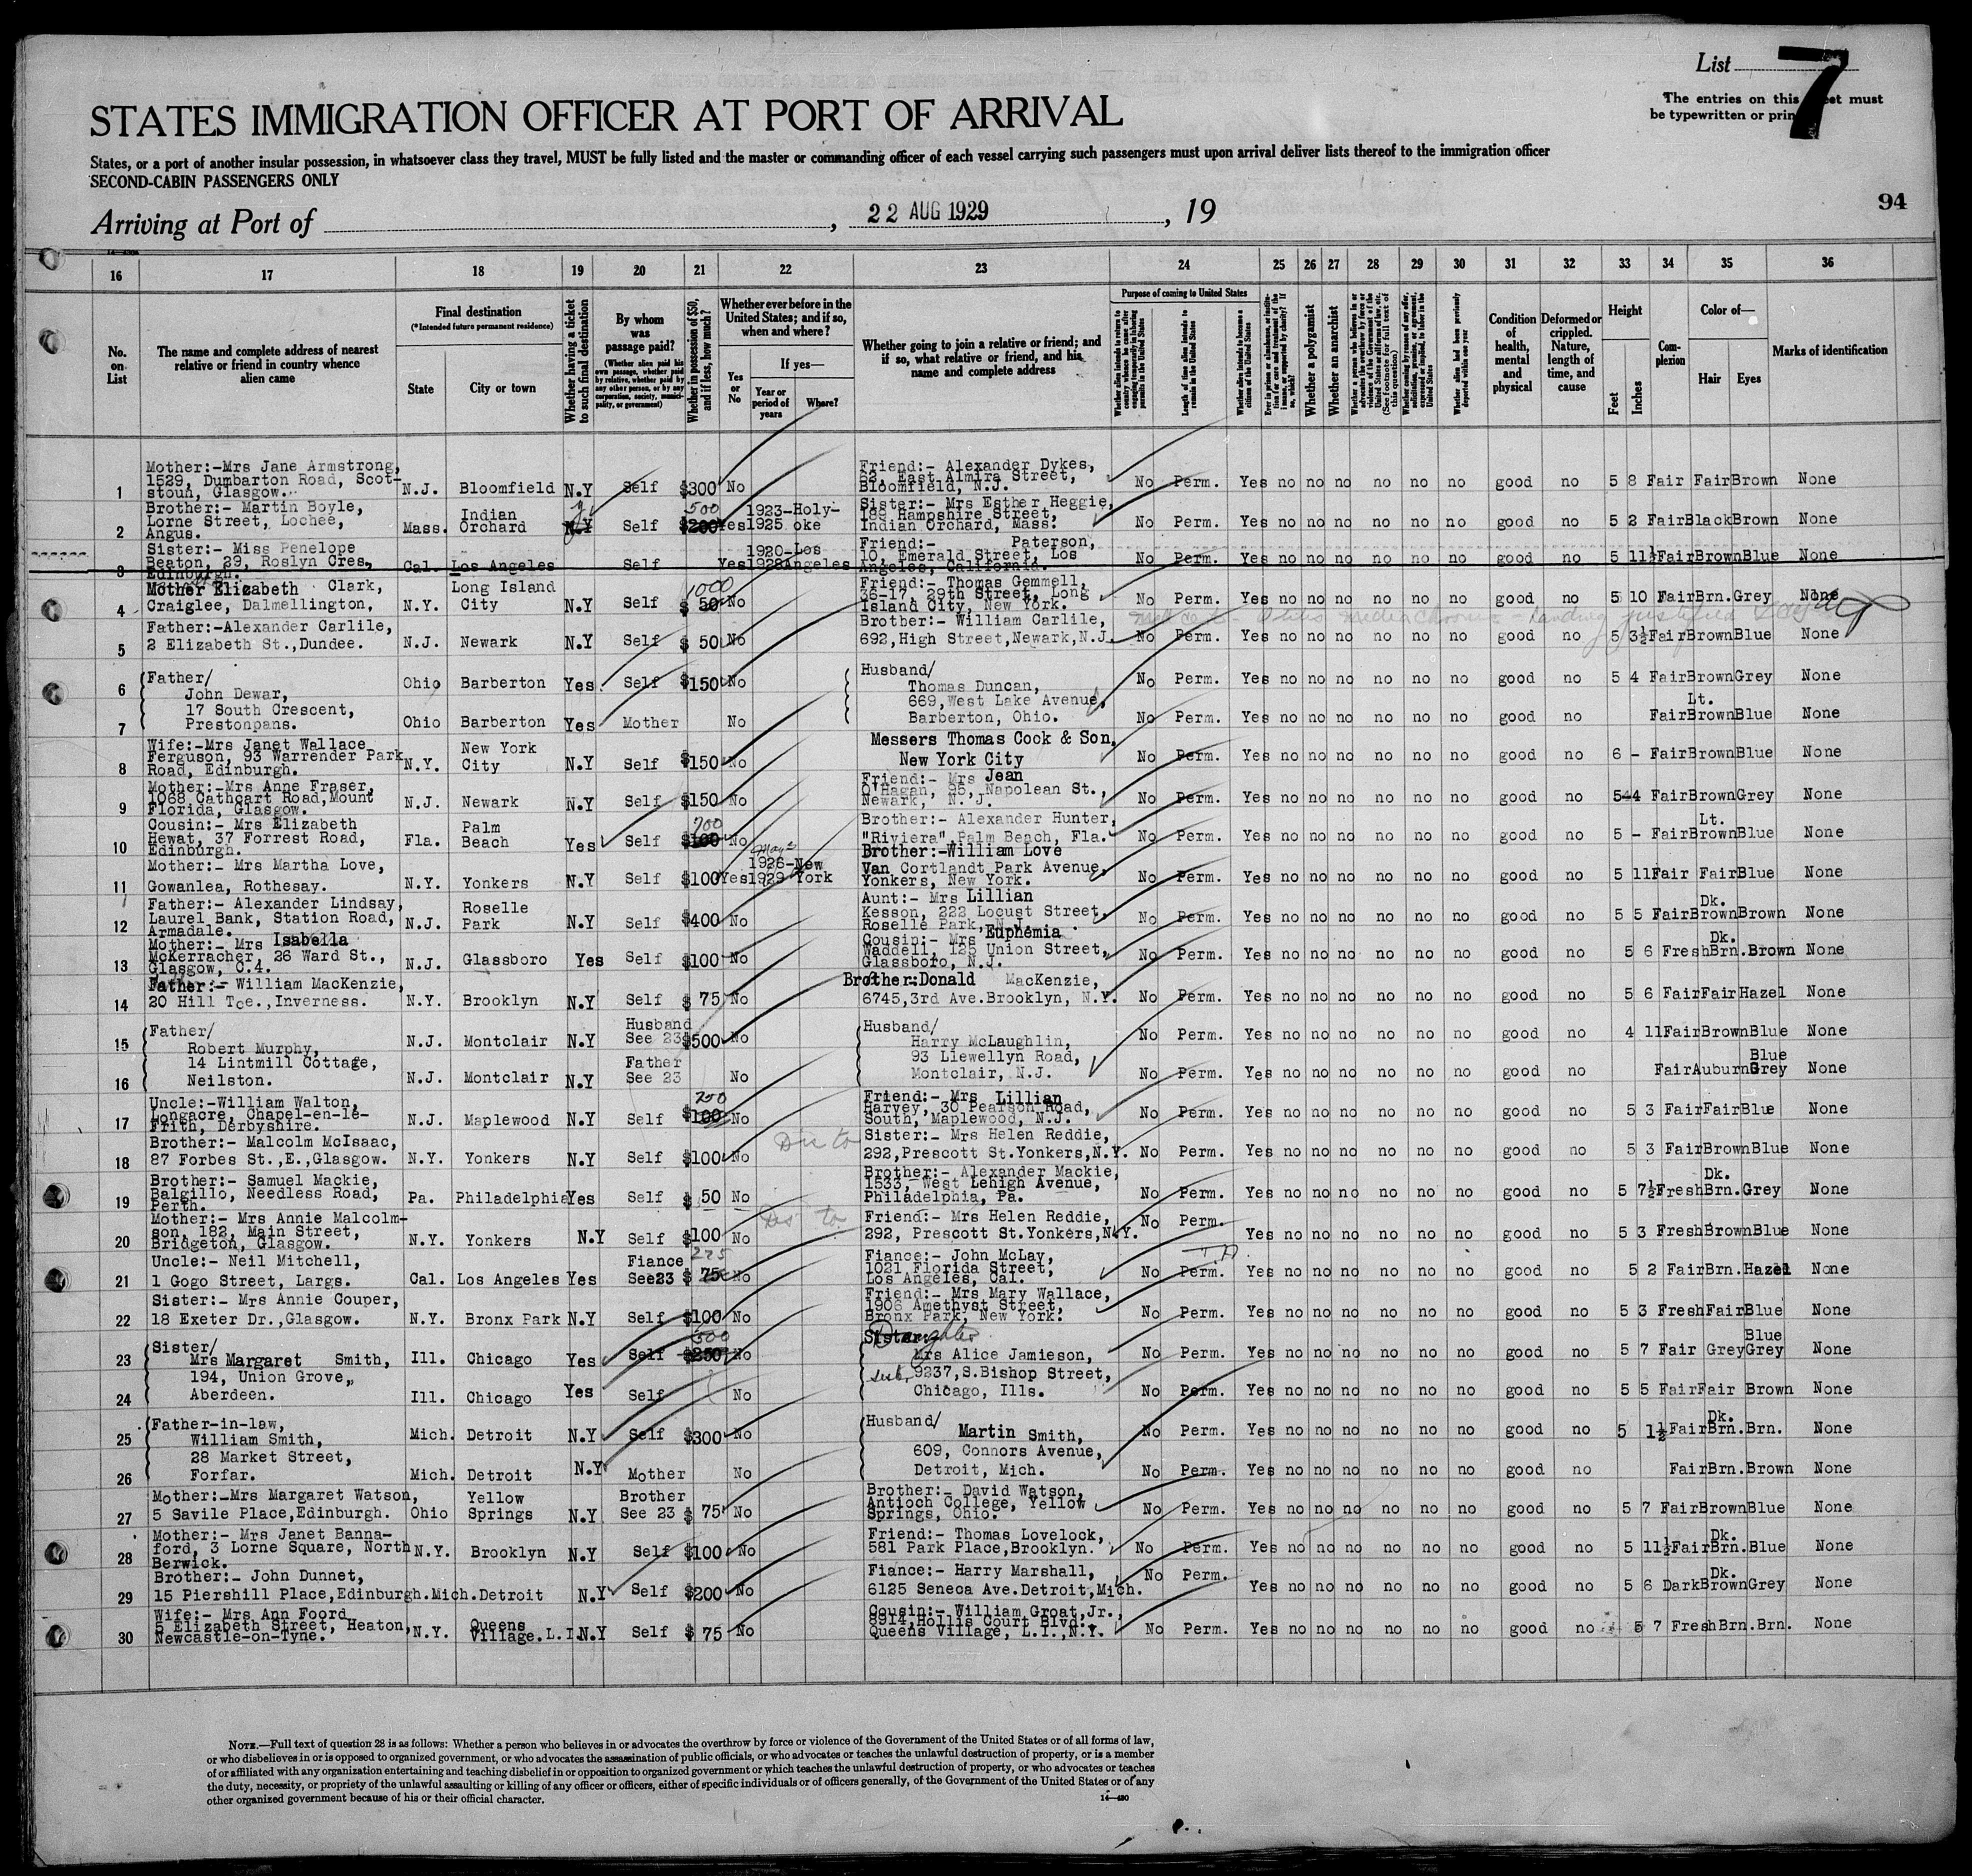 List 7
The entries on this sheet must
be typewritten or printed
STATES IMMIGRATION OFFICER AT PORT OF ARRIVAL
States, or a port of another insular possession, in whatsoever class they travel, MUST be fully listed and the master or commanding officer of each vessel carrying such passengers must upon arrival deliver lists thereof to the immigration officer
SECOND-CABIN PASSENGERS ONLY
94
Arriving at Port of , 22 AUG 1929 , 19
16 17 18 19 20 21 22 23 24 25 26 27 28 29 30 31 32 33 34 35 36
No. on List
The name and complete address of nearest relative or friend in country whence alien came
Final destination
(*Intended future permanent residence)
State
City or town
Whether having a ticket to such final destination
By whom was passage paid?
(Whether alien paid his own passage, whether paid by relative, whether paid by any other person, or by any corporation, society, municipality, or government)
Whether in possession of $50, and if less, how much?
Whether ever before in the United States; and if so, when and where?
Yes or No
If yes—
Year or period of years
Where?
Whether going to join a relative or friend; and if so, what relative or friend, and his name and complete address
Purpose of coming to United States
Whether alien intends to return to country whence he came after engaging temporarily in laboring pursuits in the United States
Length of time alien intends to remain in the United States
Whether alien intends to become a citizen of the United States
Whether a polygamist
Whether an anarchist
Whether alien had been previously deported within one year
Condition of health, mental and physical
Deformed or crippled. Nature, length of time, and cause
Height
Feet
Inches
Complexion
Color of—
Hair
Eyes
Marks of identification
1 Mother:-Mrs Jane Armstrong, 1529, Dumbarton Road, Scotstoun, Glasgow. N.J. Bloomfield N.Y Self $300 No Friend:- Alexander Dykes, 62, East Almira Street, Bloomfield, N.J. No Perm. Yes no no no no no good no 5 8 Fair Fair Brown None
2 Brother:- Martin Boyle, Lorne Street, Lochee, Angus. Mass. Indian Orchard N.Y Self $200 500 Yes 1923-1925 Holyoke Sister:- Mrs Esther Heggie, 189 Hampshire Street, Indian Orchard, Mass. No Perm. Yes no no no no no good no 5 2 Fair Black Brown None
3 Sister:- Miss Penelope Beaton, 29, Roslyn Cres, Edinburgh. Cal. Los Angeles Self Yes 1920-1928 Los Angeles Friend:- Paterson, 10, Emerald Street, Los Angeles, California. No Perm. Yes no no no no no good no 5 11½ Fair Brown Blue None
4 Mother Elizabeth Clark, Craiglee, Dalmellington, N.Y. Long Island City N.Y Self $ 50 1000 No Friend:- Thomas Gemmell, 36-17, 29th Street, Long Island City, New York. No Perm. Yes no no no no no good no 5 10 Fair Brn. Grey None
5 Father:-Alexander Carlile, 2 Elizabeth St.,Dundee. N.J. Newark N.Y Self $ 50 No Brother:- William Carlile, 692,High Street,Newark,N.J. No Perm. Yes no no no no no good no 5 3½ Fair Brown Blue None
6 Father/ John Dewar, Ohio Barberton Yes Self $150 No Husband/ Thomas Duncan, No Perm. Yes no no no no no good no 5 4 Fair Brown Grey None
7 17 South Crescent, Prestonpans. Ohio Barberton Yes Mother No 669,West Lake Avenue, Barberton, Ohio. No Perm. Yes no no no no no good no Fair Lt. Brown Blue None
8 Wife:-Mrs Janet Wallace Ferguson, 93 Warrender Park Road, Edinburgh. N.Y. New York City N.Y Self $150 No Messers Thomas Cook & Son, New York City No Perm. Yes no no no no no good no 6 - Fair Brown Blue None
9 Mother:-Mrs Anne Fraser, 1068 Cathcart Road,Mount Florida, Glasgow. N.J. Newark N.Y Self $150 No Friend:- Mrs Jean O'Hagan, 95, Napolean St., Newark, N. J. No Perm. Yes no no no no no good no 5 4 Fair Brown Grey None
10 Cousin:- Mrs Elizabeth Hewat, 37 Forrest Road, Edinburgh. Fla. Palm Beach Yes Self $100 700 No Brother:- Alexander Hunter, "Riviera",Palm Beach, Fla. No Perm. Yes no no no no no good no 5 - Fair Lt. Brown Blue None
11 Mother:- Mrs Martha Love, Gowanlea, Rothesay. N.Y. Yonkers N.Y Self $100 Yes 1926-1929 New York Brother:-William Love Van Cortlandt Park Avenue, Yonkers, New York. No Perm. Yes no no no no no good no 5 11 Fair Fair Blue None
12 Father:- Alexander Lindsay, Laurel Bank, Station Road, Armadale. N.J. Roselle Park N.Y Self $400 No Aunt:- Mrs Lillian Kesson, 222 Locust Street, Roselle Park, N.J. No Perm. Yes no no no no no good no 5 5 Fair Dk. Brown Brown None
13 Mother:- Mrs Isabella McKerracher, 26 Ward St., Glasgow, C.4. N.J. Glassboro Yes Self $100 No Cousin:- Mrs Euphemia Waddell, 125 Union Street, Glassboro, N.J. No Perm. Yes no no no no no good no 5 6 Fresh Dk. Brn. Brown None
14 Father:- William MacKenzie, 20 Hill Tce.,Inverness. N.Y. Brooklyn N.Y Self $ 75 No Brother:Donald MacKenzie, 6745,3rd Ave.Brooklyn, N.Y. No Perm. Yes no no no no no good no 5 6 Fair Fair Hazel None
15 Father/ Robert Murphy, N.J. Montclair N.Y Husband See 23 $500 No Husband/ Harry McLaughlin, No Perm. Yes no no no no no good no 4 11 Fair Brown Blue None
16 14 Lintmill Cottage, Neilston. N.J. Montclair N.Y Father See 23 No 93 Llewellyn Road, Montclair, N.J. No Perm. Yes no no no no no good no Fair Auburn Blue Grey None
17 Uncle:-William Walton, Longacre, Chapel-en-le-Frith, Derbyshire. N.J. Maplewood N.Y Self $100 No Friend:- Mrs Lillian Harvey, 30 Pearson Road, South, Maplewood, N.J. No Perm. Yes no no no no no good no 5 3 Fair Fair Blue None
18 Brother:- Malcolm McIsaac, 87 Forbes St.,E.,Glasgow. N.Y. Yonkers N.Y Self $100 No Sister:- Mrs Helen Reddie, 292,Prescott St.Yonkers,N.Y. No Perm. Yes no no no no no good no 5 3 Fair Brown Blue None
19 Brother:- Samuel Mackie, Balgillo, Needless Road, Perth. Pa. Philadelphia Yes Self $ 50 No Brother:- Alexander Mackie, 1533, West Lehigh Avenue, Philadelphia, Pa. No Perm. Yes no no no no no good no 5 7½ Fresh Dk. Brn. Grey None
20 Mother:- Mrs Annie Malcolmson, 182, Main Street, Bridgeton, Glasgow. N.Y. Yonkers N.Y Self $100 No Friend:- Mrs Helen Reddie, 292, Prescott St.Yonkers,N.Y. No Perm. Yes no no no no no good no 5 3 Fresh Brown Blue None
21 Uncle:- Neil Mitchell, 1 Gogo Street, Largs. Cal. Los Angeles Yes Fiance See23 $ 75 225 No Fiance:- John McLay, 1021 Florida Street, Los Angeles, Cal. No Perm. Yes no no no no no good no 5 2 Fair Brn. Hazel None
22 Sister:- Mrs Annie Couper, 18 Exeter Dr.,Glasgow. N.Y. Bronx Park N.Y Self $100 No Friend:- Mrs Mary Wallace, 1906 Amethyst Street, Bronx Park, New York. No Perm. Yes no no no no no good no 5 3 Fresh Fair Blue None
23 Sister/ Mrs Margaret Smith, Ill. Chicago Yes Self $250 500 No Sister: Daughter Mrs Alice Jamieson, No Perm. Yes no no no no no good no 5 7 Fair Grey Blue Grey None
24 194, Union Grove, Aberdeen. Ill. Chicago Yes Self No 9237,S.Bishop Street, Chicago, Ills. No Perm. Yes no no no no no good no 5 5 Fair Fair Brown None
25 Father-in-law, William Smith, Mich. Detroit N.Y Self $300 No Husband/ Martin Smith, No Perm. Yes no no no no no good no 5 1½ Fair Dk. Brn. Brn. None
26 28 Market Street, Forfar. Mich. Detroit N.Y Mother No 609, Connors Avenue, Detroit, Mich. No Perm. Yes no no no no no good no Fair Brn. Brown None
27 Mother:-Mrs Margaret Watson, 5 Savile Place,Edinburgh. Ohio Yellow Springs N.Y Brother See 23 $ 75 No Brother:- David Watson, Antioch College, Yellow Springs, Ohio. No Perm. Yes no no no no no good no 5 7 Fair Brown Blue None
28 Mother:- Mrs Janet Bannaford, 3 Lorne Square, North Berwick. N.Y. Brooklyn N.Y Self $100 No Friend:- Thomas Lovelock, 581 Park Place,Brooklyn. No Perm. Yes no no no no no good no 5 11½ Fair Dk. Brn. Blue None
29 Brother:- John Dunnet, 15 Piershill Place,Edinburgh. Mich. Detroit N.Y Self $200 No Fiance:- Harry Marshall, 6125 Seneca Ave.Detroit,Mich. No Perm. Yes no no no no no good no 5 6 Dark Dk. Brown Grey None
30 Wife:- Mrs Ann Foord, 5 Elizabeth Street, Heaton, Newcastle-on-Tyne. N.Y. Queens Village.L.I. N.Y Self $ 75 No Cousin:- William Groat,Jr., 8914,Hollis Court Blvd., Queens Village, L.I.,N.Y. No Perm. Yes no no no no no good no 5 7 Fresh Brn. Brn. None
NOTE.—Full text of question 28 is as follows: Whether a person who believes in or advocates the overthrow by force or violence of the Government of the United States or of all forms of law,
or who disbelieves in or is opposed to organized government, or who advocates the assassination of public officials, or who advocates or teaches the unlawful destruction of property, or is a member
of or affiliated with any organization entertaining and teaching disbelief in or opposition to organized government or which teaches the unlawful destruction of property, or who advocates or teaches
the duty, necessity, or propriety of the unlawful assaulting or killing of any officer or officers, either of specific individuals or of officers generally, of the Government of the United States or of any
other organized government because of his or their official character.
14—430